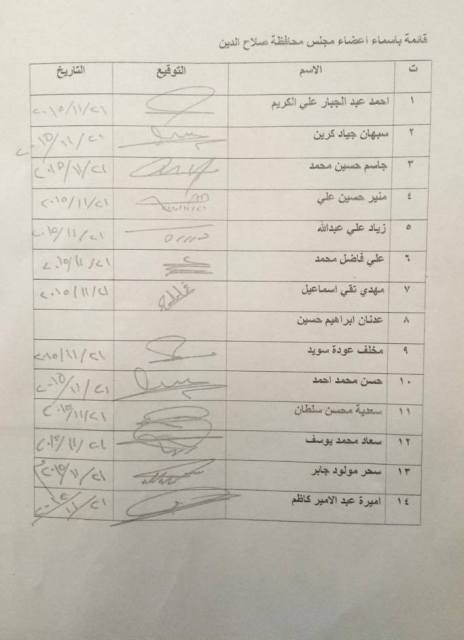 قائمة باسماء اعضاء مجلس محافظة صلاح الدين
ت الاسم التوقيع التاريخ
١ احمد عبد الجبار علي الكريم ٢٠١٥/١١/٢١
٢ سبهان جياد كرين ٢٠١٥/١١/٢١
٣ جاسم حسين محمد ٢٠١٥/١١/٢١
٤ منير حسين علي ٢٠١٥/١١/٢١
٥ زياد علي عبدالله ٢٠١٥/١١/٢١
٦ علي فاضل محمد ٢٠١٥/١١/٢١
٧ مهدي تقي اسماعيل ٢٠١٥/١١/٢١
٨ عدنان ابراهيم حسين
٩ مخلف عودة سويد ٢٠١٥/١١/٢١
١٠ حسن محمد احمد ٢٠١٥/١١/٢١
١١ سعدية محسن سلطان ٢٠١٥/١١/٢١
١٢ سعاد محمد يوسف ٢٠١٥/١١/٢١
١٣ سحر مولود جابر ٢٠١٥/١١/٢١
١٤ اميرة عبد الامير كاظم